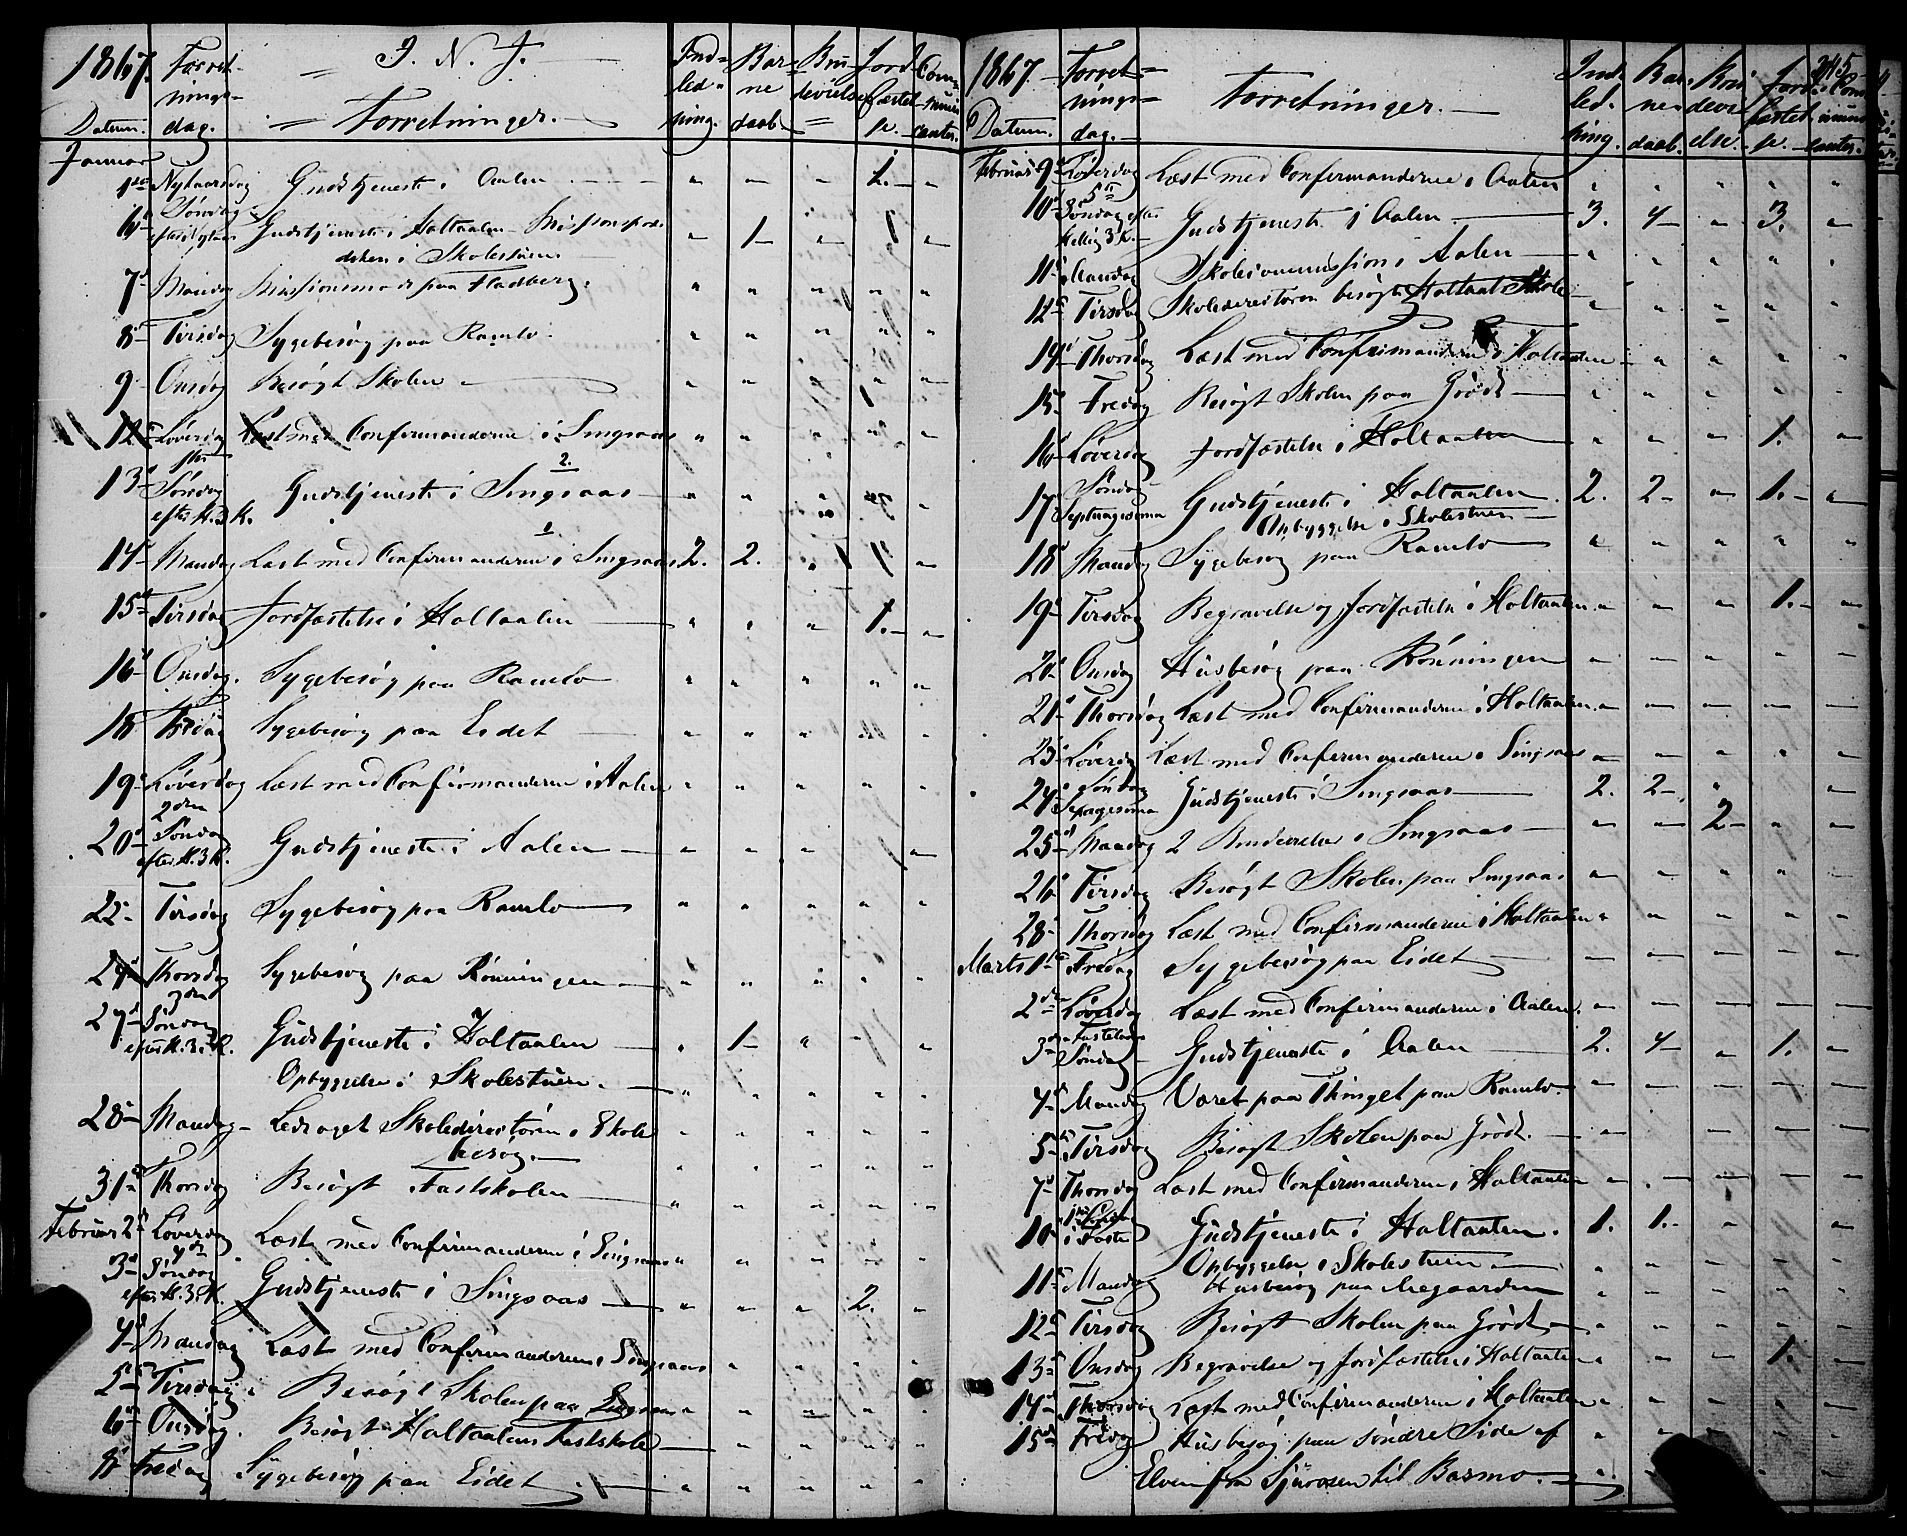 1867. Forret- J. N. J. Ind- Bar- Bru- Jord- Com-
nings- led- ne devielse fæstel- muni-
Datum. dag. Forretninger. ning. daab. se. canter.
Januar
1ste Nytaarsdag Gudstjeneste i Aalen " — — 1. "
6te Søndag efter Nytaar Gudstjeneste i Holtaalen — Missionspræ- " 1 " 1 "
diken i Skolestuen
7de Mandag Missionsmøde paa Fladberg. " " " " "
8de Tirsdag Sygebesøg paa Ramlo " " " " "
9 Onsdag Besøgt Skolen " " " " "
12te Løverdag Læst med Confirmanderne i Singsaas " " " " "
2.
13de Søndag Gudstjeneste i Singsaas " " "
efter H. 3 K.
1.
14de Mandag Læst med Confirmanderne i Singsaas 2. 2. "
15de Tirsdag Jordfæstelse i Holtaalen " " " 1. "
16de Onsdag. Sygebesøg paa Ramlo " " " " "
18 Fredag Sygebesøg paa Eidet " " " "
19de Løverdag Læst med Confirmanderne i Aalen " " " " "
2den
20de Søndag Gudstjeneste i Aalen " " " "
efter H. 3 K.
22de Tirsdag Sygebesøg paa Ramlo " " " " "
24de Thorsdag Sygebesøg paa Rønningen " " " " "
3die
27de Søndag Gudstjeneste i Holtaalen " 1 " "
efter H. 3. K.
Opbyggelse i Skolestuen. " " " " "
28de Mandag Ledsaget Skoledirectøren i Skole " " " " "
besøg. " " " " "
31te Thorsdag Besøgt Fastskolen " " " " "
Februar 2den Løverdag Læst med Confirmanderne i Singsaas " " " " "
4de
3die Søndag Gudstjeneste i Singsaas " " " 2. "
efter H. 3. K.
4de Mandag Læst med Confirmanderne i Singsaas " " " "
5te Tirsdag Besøgt Skolen paa Singsaas " " " " "
6te Onsdag. Besøgt Holtaalens Fastskole " " " "
8de Fredag Sygebesøg paa Eidet " " " " "
245
1867 Forret- Ind- Bar- Bru- Jord- Com-
nings- Forretninger. led- ne- devi- fæstel- muni-
Datum. dag. ning. daab. else. se. canter.
Februar 9de Løverdag Læst med Confirmanderne i Aalen " " " " "
5te
10de Søndag efter Gudstjeneste i Aalen. 3. 4 " 3. "
Hellig 3 K.
11te Mandag Skolecommission i Aalen " " " " "
12te Tirsdag Skoledirectøren besøgte Holtaal. Skole " " " " "
14de Thorsdag Læst med Confirmanderne i Holtaalen " " " "
15de Fredag Besøgt Skolen paa Grødt " " " " "
16de Løverdag Jordfæstelse i Holtaalen " " " 1. "
17de Søndag Septuagesima Gudstjeneste i Holtaalen. 2. 2 " 1. "
Opbyggelse i Skolestuen
18de Mandag Sygebesøg paa Ramlo " " " " "
19de Tirsdag Begravelse og Jordfæstelse i Holtaalen " " " 1. "
20de Onsdag Husbesøg paa Rønningen " " " " "
21de Thorsdag Læst med Confirmanderne i Holtaalen. " " " " "
23de Løverdag Læst med Confirmanderne i Singsaas " " " " "
24de Søndag Sexagesima Gudstjeneste i Singsaas 2. 2 " "
25de Mandag 2 Brudevielser i Singsaas " " 2 " "
26de Tirsdag Besøgt Skolen paa Singsaas " " " " "
28de Thorsdag Læst med Confirmanderne i Holtaalen " " " " "
Marts 1ste Fredag Sygebesøg paa Eidet " " " " "
2den Løverdag Læst med Confirmanderne i Aalen. " " " " "
3die Fastelavns Søndag Gudstjeneste i Aalen 2. 4 " 1. "
4de Mandag Været paa Thinget paa Ramlo. " " " " "
5te Tirsdag Besøgt Skolen paa Grødt. " " " " "
7de Thorsdag Læst med Confirmanderne i Holtaalen " " " " "
10de i Faste Gudstjeneste i Holtaalen. 1. 1. " " "
Opbyggelse i Skolestuen " " " " "
11te Mandag Husbesøg paa Aegaarden " " " " "
12te Tirsdag Besøgt Skolen paa Grødt " " " " "
13de Onsdag Begravelse og Jordfæstelse i Holtaalen " " " 1. "
14de Thorsdag Læst med Confirmanderne i Holtaalen " " " " "
15de Fredag Husbesøg paa søndre Side af " " " " "
Elven fra Sjurosen til Basmo. " " " "